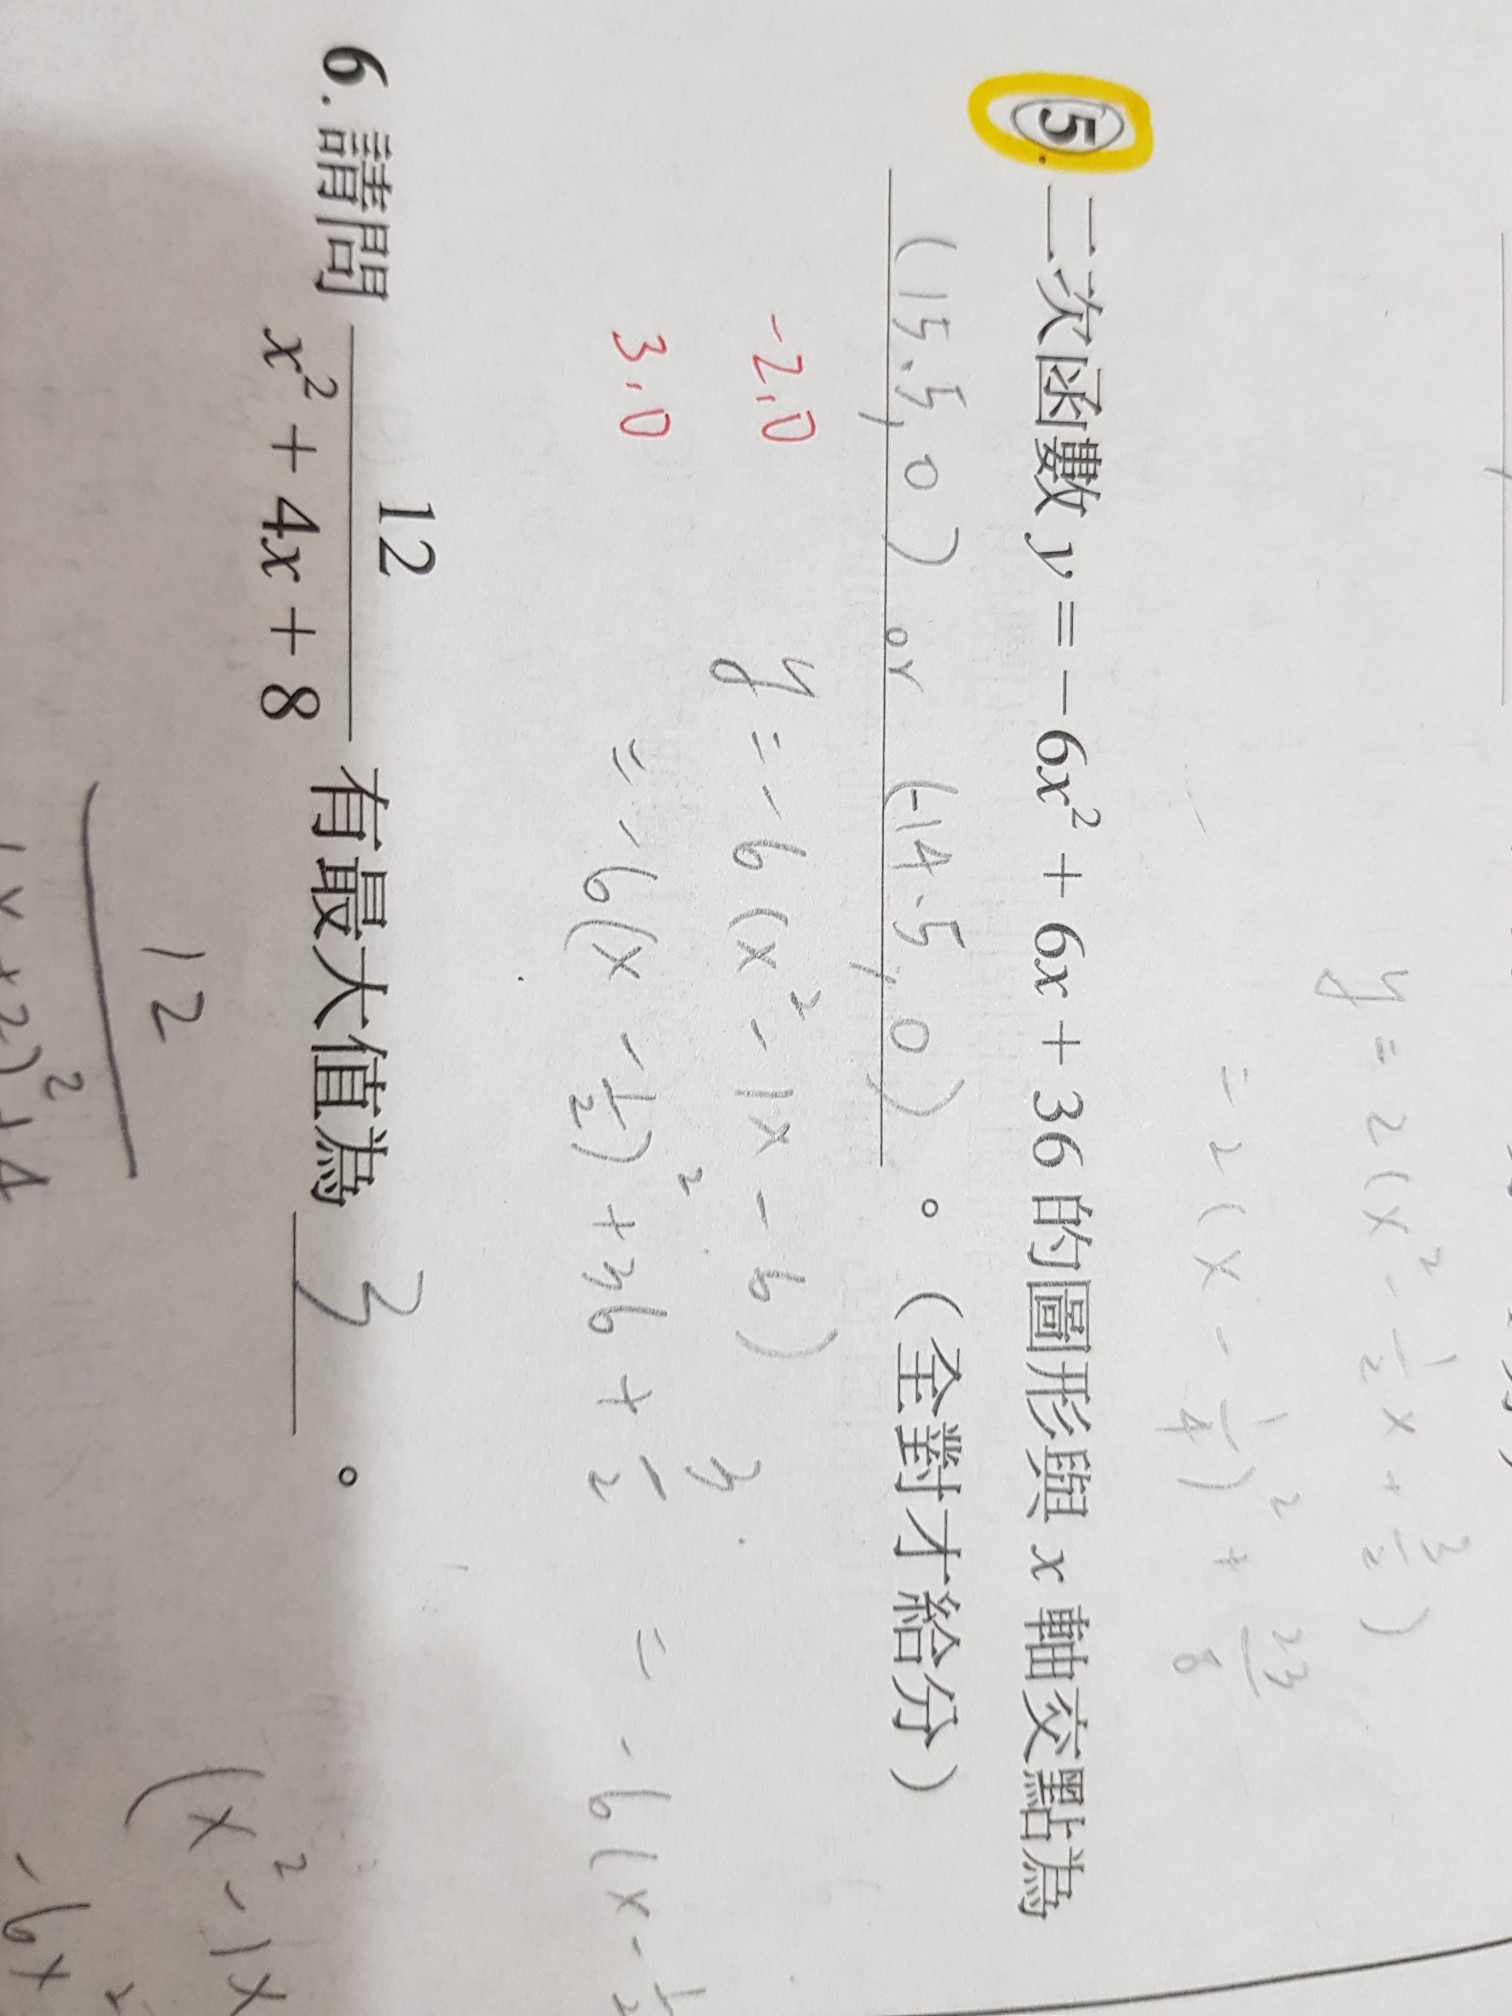 y = 2(x² - 1/2 x + 3/2)
= 2(x - 1/4)² + 23/8
5. 二次函數 y = −6x² + 6x + 36 的圖形與 x 軸交點為
(15.5, 0) or (-14.5, 0) 。(全對才給分)
-2,0
3,0
y = -6(x² - 1x - 6)
= -6(x - 1/2)² + 36 + 3/2 = -6(x - 1/2
6. 請問 12/(x² + 4x + 8) 有最大值為 3 。
12
(x+2)² + 4
(x² - 1x
-6x²